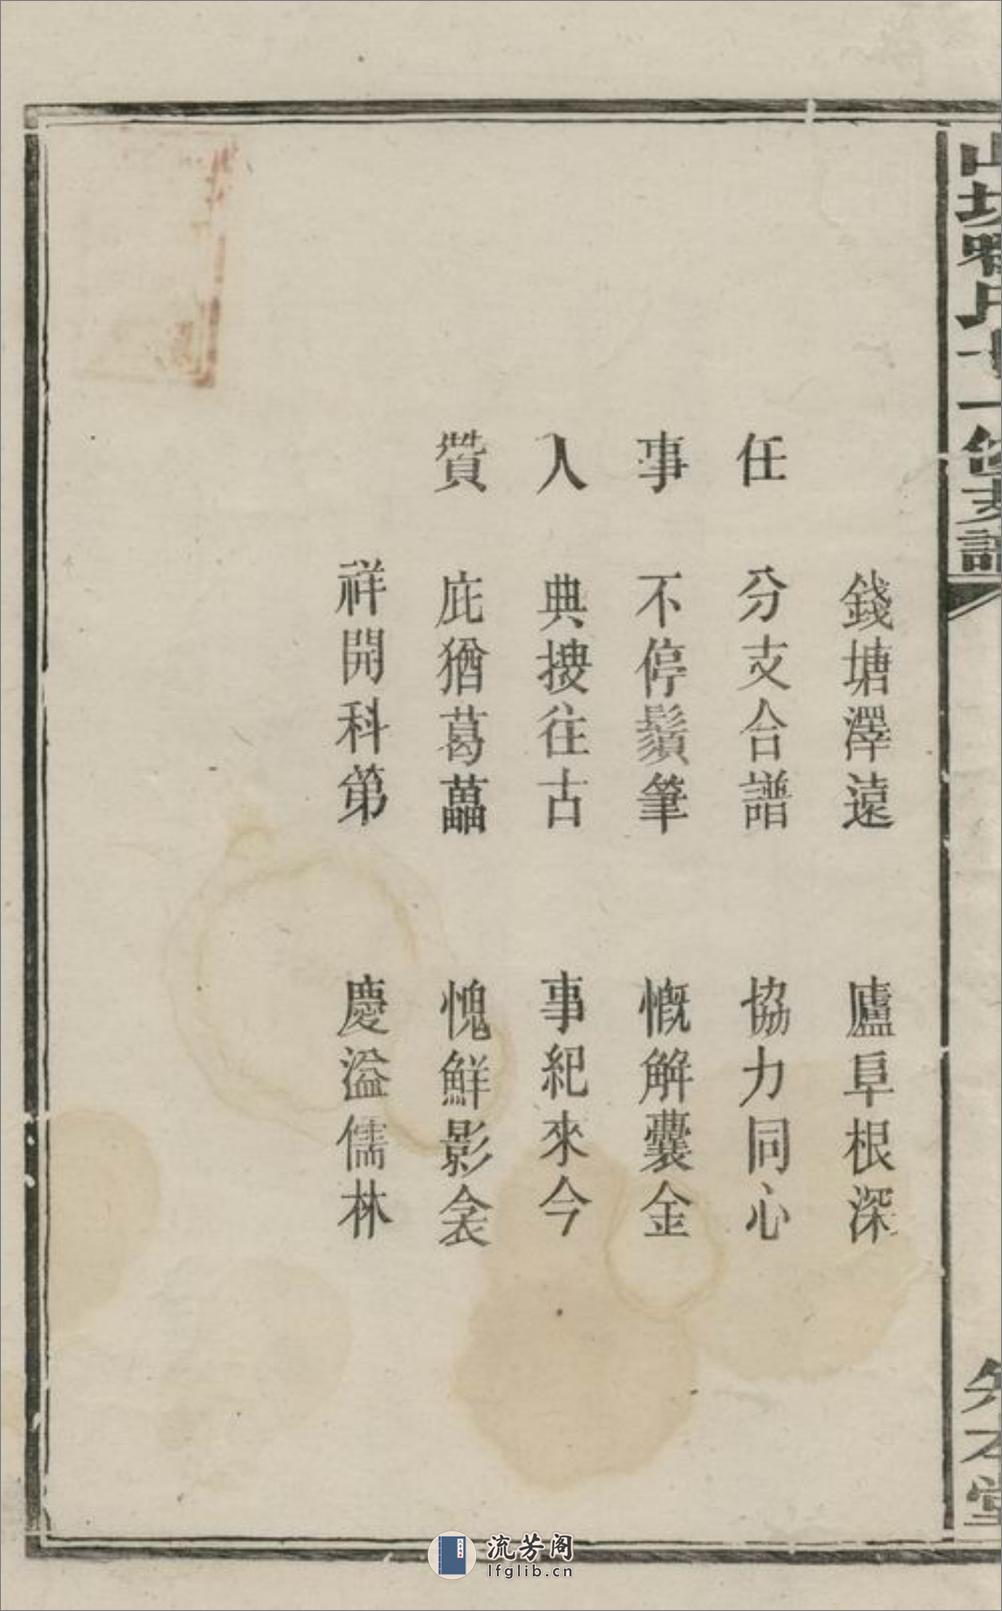 錢塘澤遠 廬阜根深
任 分支合譜 協力同心
事 不停鬚筆 慨解囊金
人 典搜往古 事紀來今
贊 庇猶葛藟 愧鮮影衾
祥開科第 慶溢儒林
流芳阁
lfglib.cn